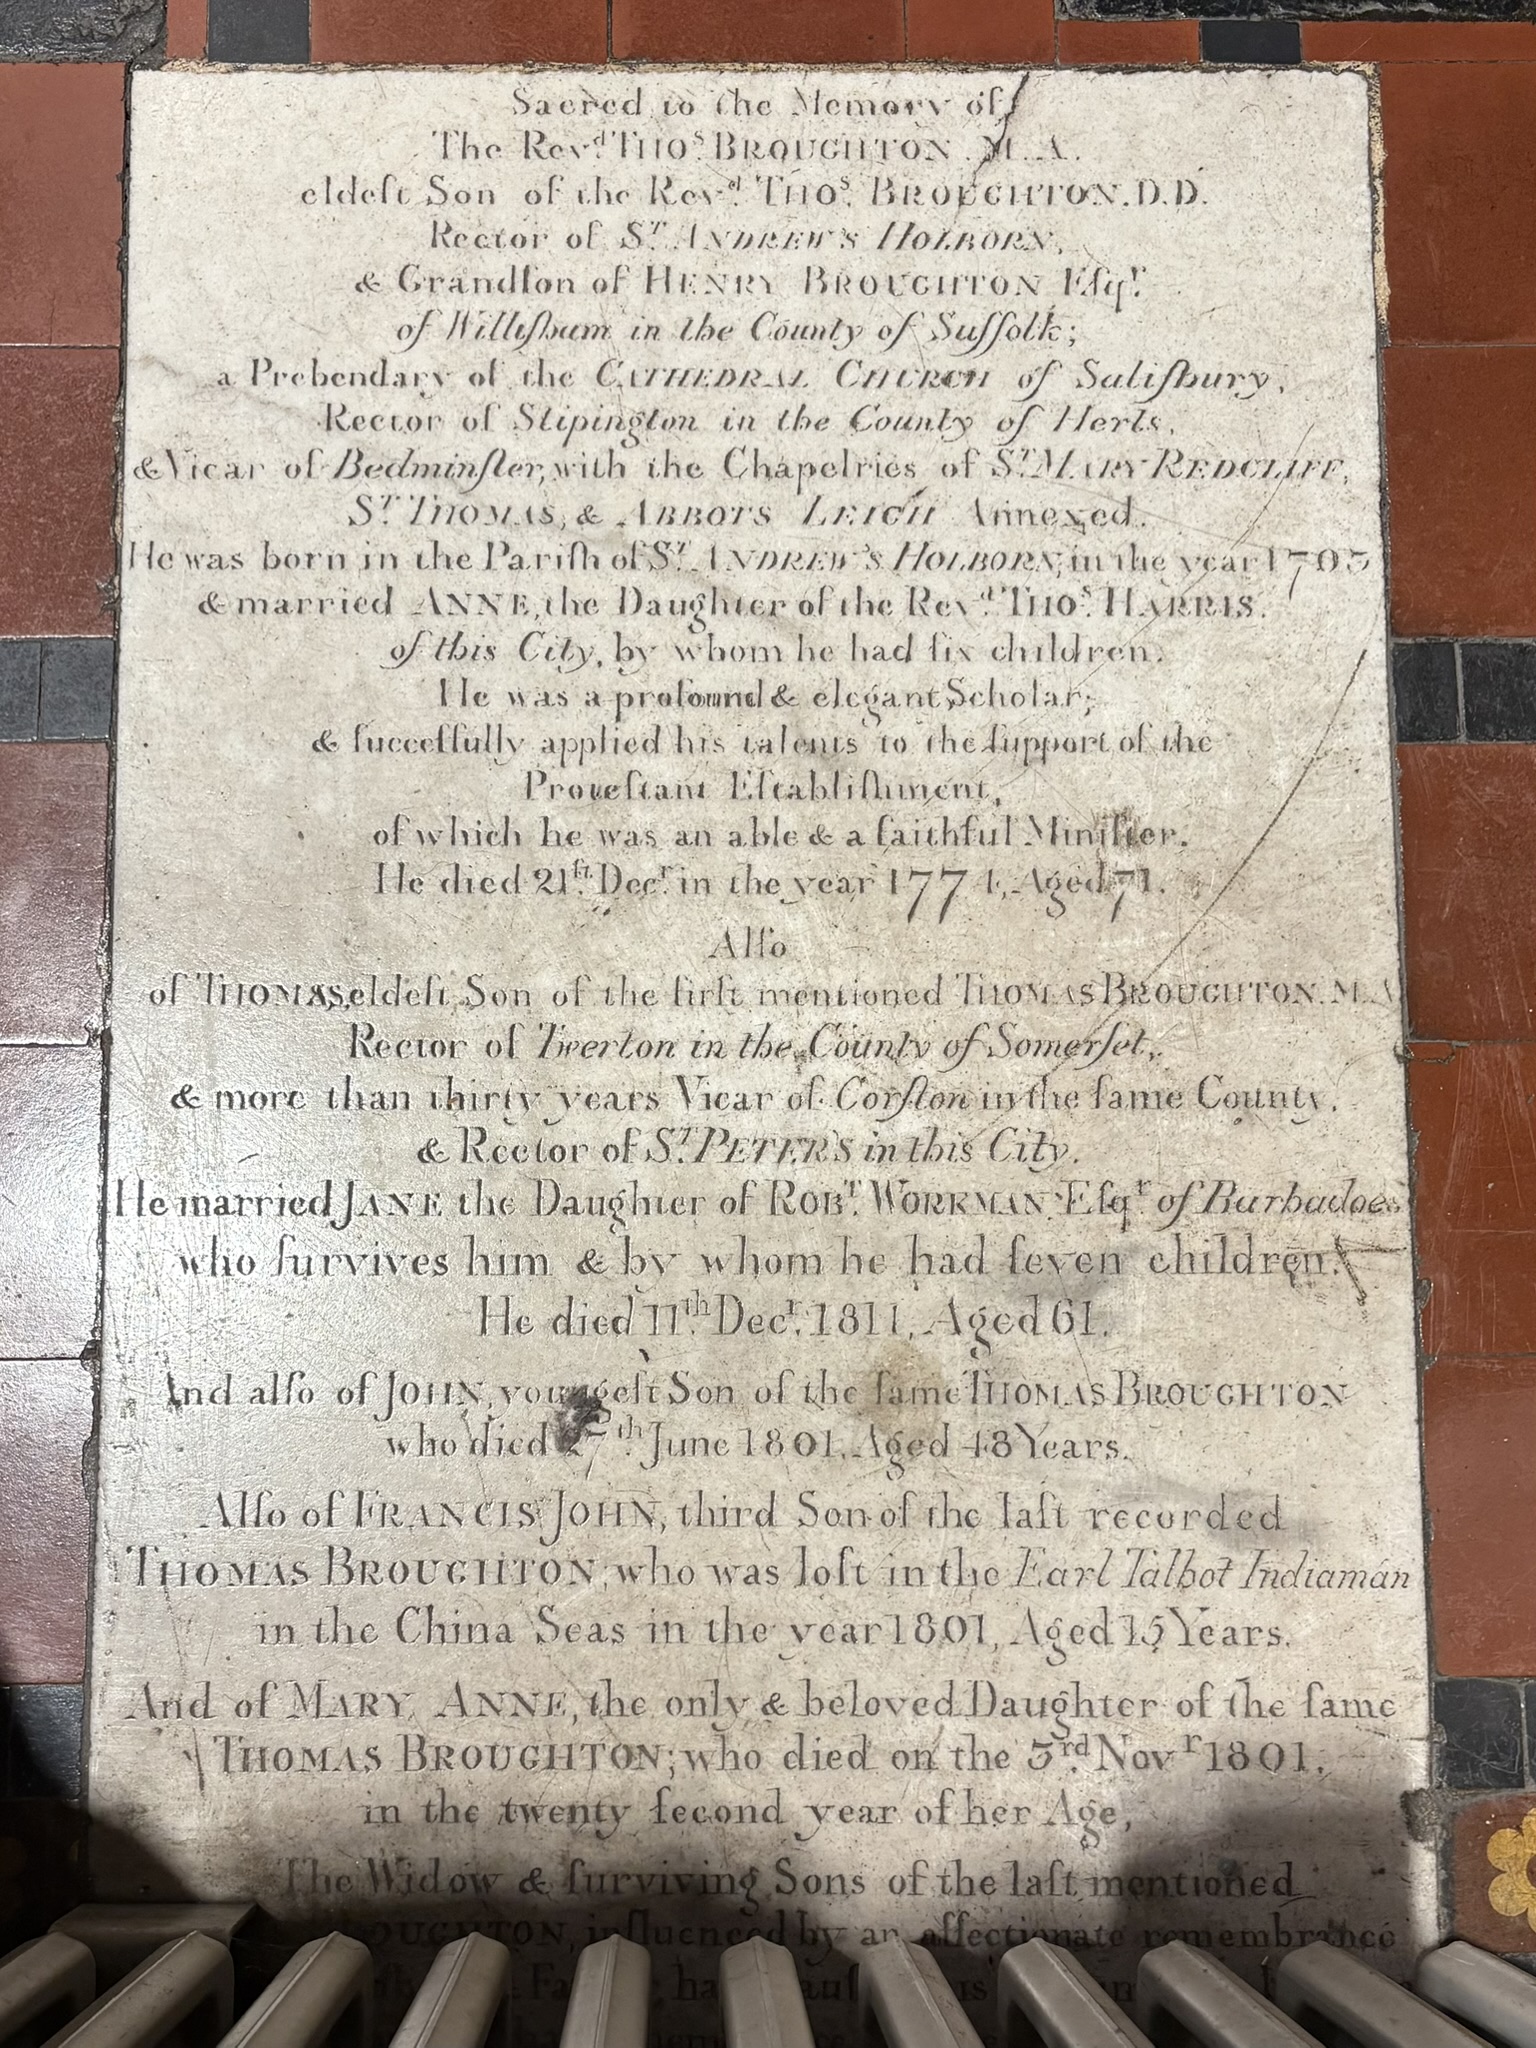 Sacred to the Memory of
The Revd. THOs. BROUGHTON. M. A.
eldeſt Son of the Revd. THOs. BROUGHTON. D.D.
Rector of ST. ANDREW'S HOLBORN,
& Grandſon of HENRY BROUGHTON Eſqr.
of Williſham in the County of Suffolk;
a Prebendary of the CATHEDRAL CHURCH of Saliſbury,
Rector of Stipington in the County of Herts,
& Vicar of Bedminſter, with the Chapelries of ST. MARY REDCLIFF,
ST. THOMAS, & ABBOTS LEIGH Annexed.
He was born in the Pariſh of ST. ANDREW'S HOLBORN, in the year 1703
& married ANNE, the Daughter of the Revd. THOs. HARRIS.
of this City, by whom he had ſix children.
He was a profound & elegant Scholar;
& ſucceſſfully applied his talents to the ſupport of the
Proteſtant Eſtabliſhment,
of which he was an able & a faithful Miniſter.
He died 21ſt. Decr. in the year 1774, Aged 71.
Alſo
of THOMAS, eldeſt Son of the firſt mentioned THOMAS BROUGHTON. M.A
Rector of Twerton in the County of Somerſet,
& more than thirty years Vicar of Corſton in the ſame County,
& Rector of ST. PETER'S in this City.
He married JANE the Daughter of ROBT. WORKMAN Eſqr. of Barbadoes
who ſurvives him & by whom he had ſeven children.
He died 11th. Decr. 1811, Aged 61.
And alſo of JOHN, youngeſt Son of the ſame THOMAS BROUGHTON
who died 27th. June 1801, Aged 48 Years.
Alſo of FRANCIS JOHN, third Son of the laſt recorded
THOMAS BROUGHTON, who was loſt in the Earl Talbot Indiaman
in the China Seas in the year 1801, Aged 15 Years.
And of MARY ANNE, the only & beloved Daughter of the ſame
THOMAS BROUGHTON; who died on the 3rd. Novr 1801.
in the twenty ſecond year of her Age,
The Widow & ſurviving Sons of the laſt mentioned
influenced by an affectionate remembrance